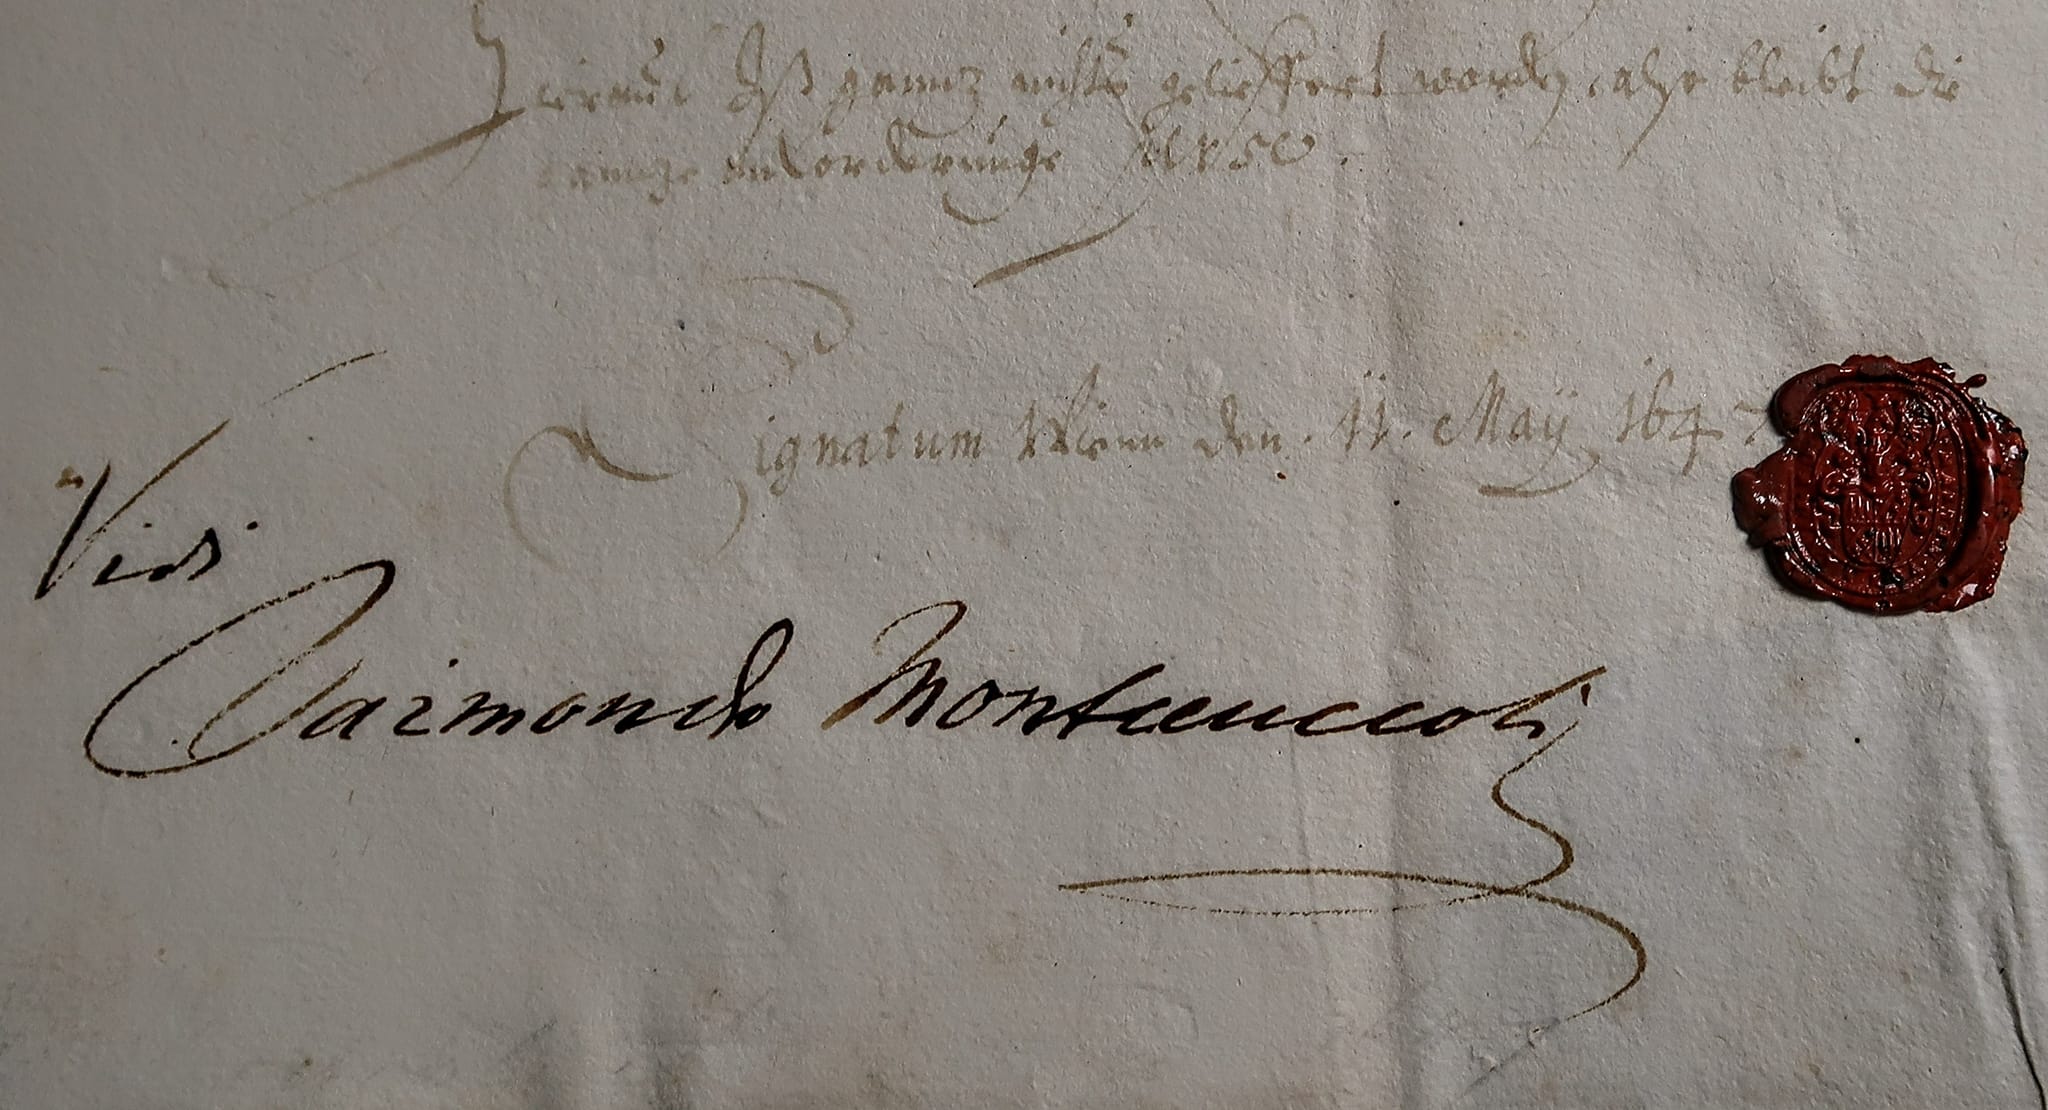 Hierauf Ist ganntz nichts gelieffert worden, also bleibt die
ganntze anforderunge
Signatum Wienn den 11. May 1647
Vidi
Raimondo Montecuccoli